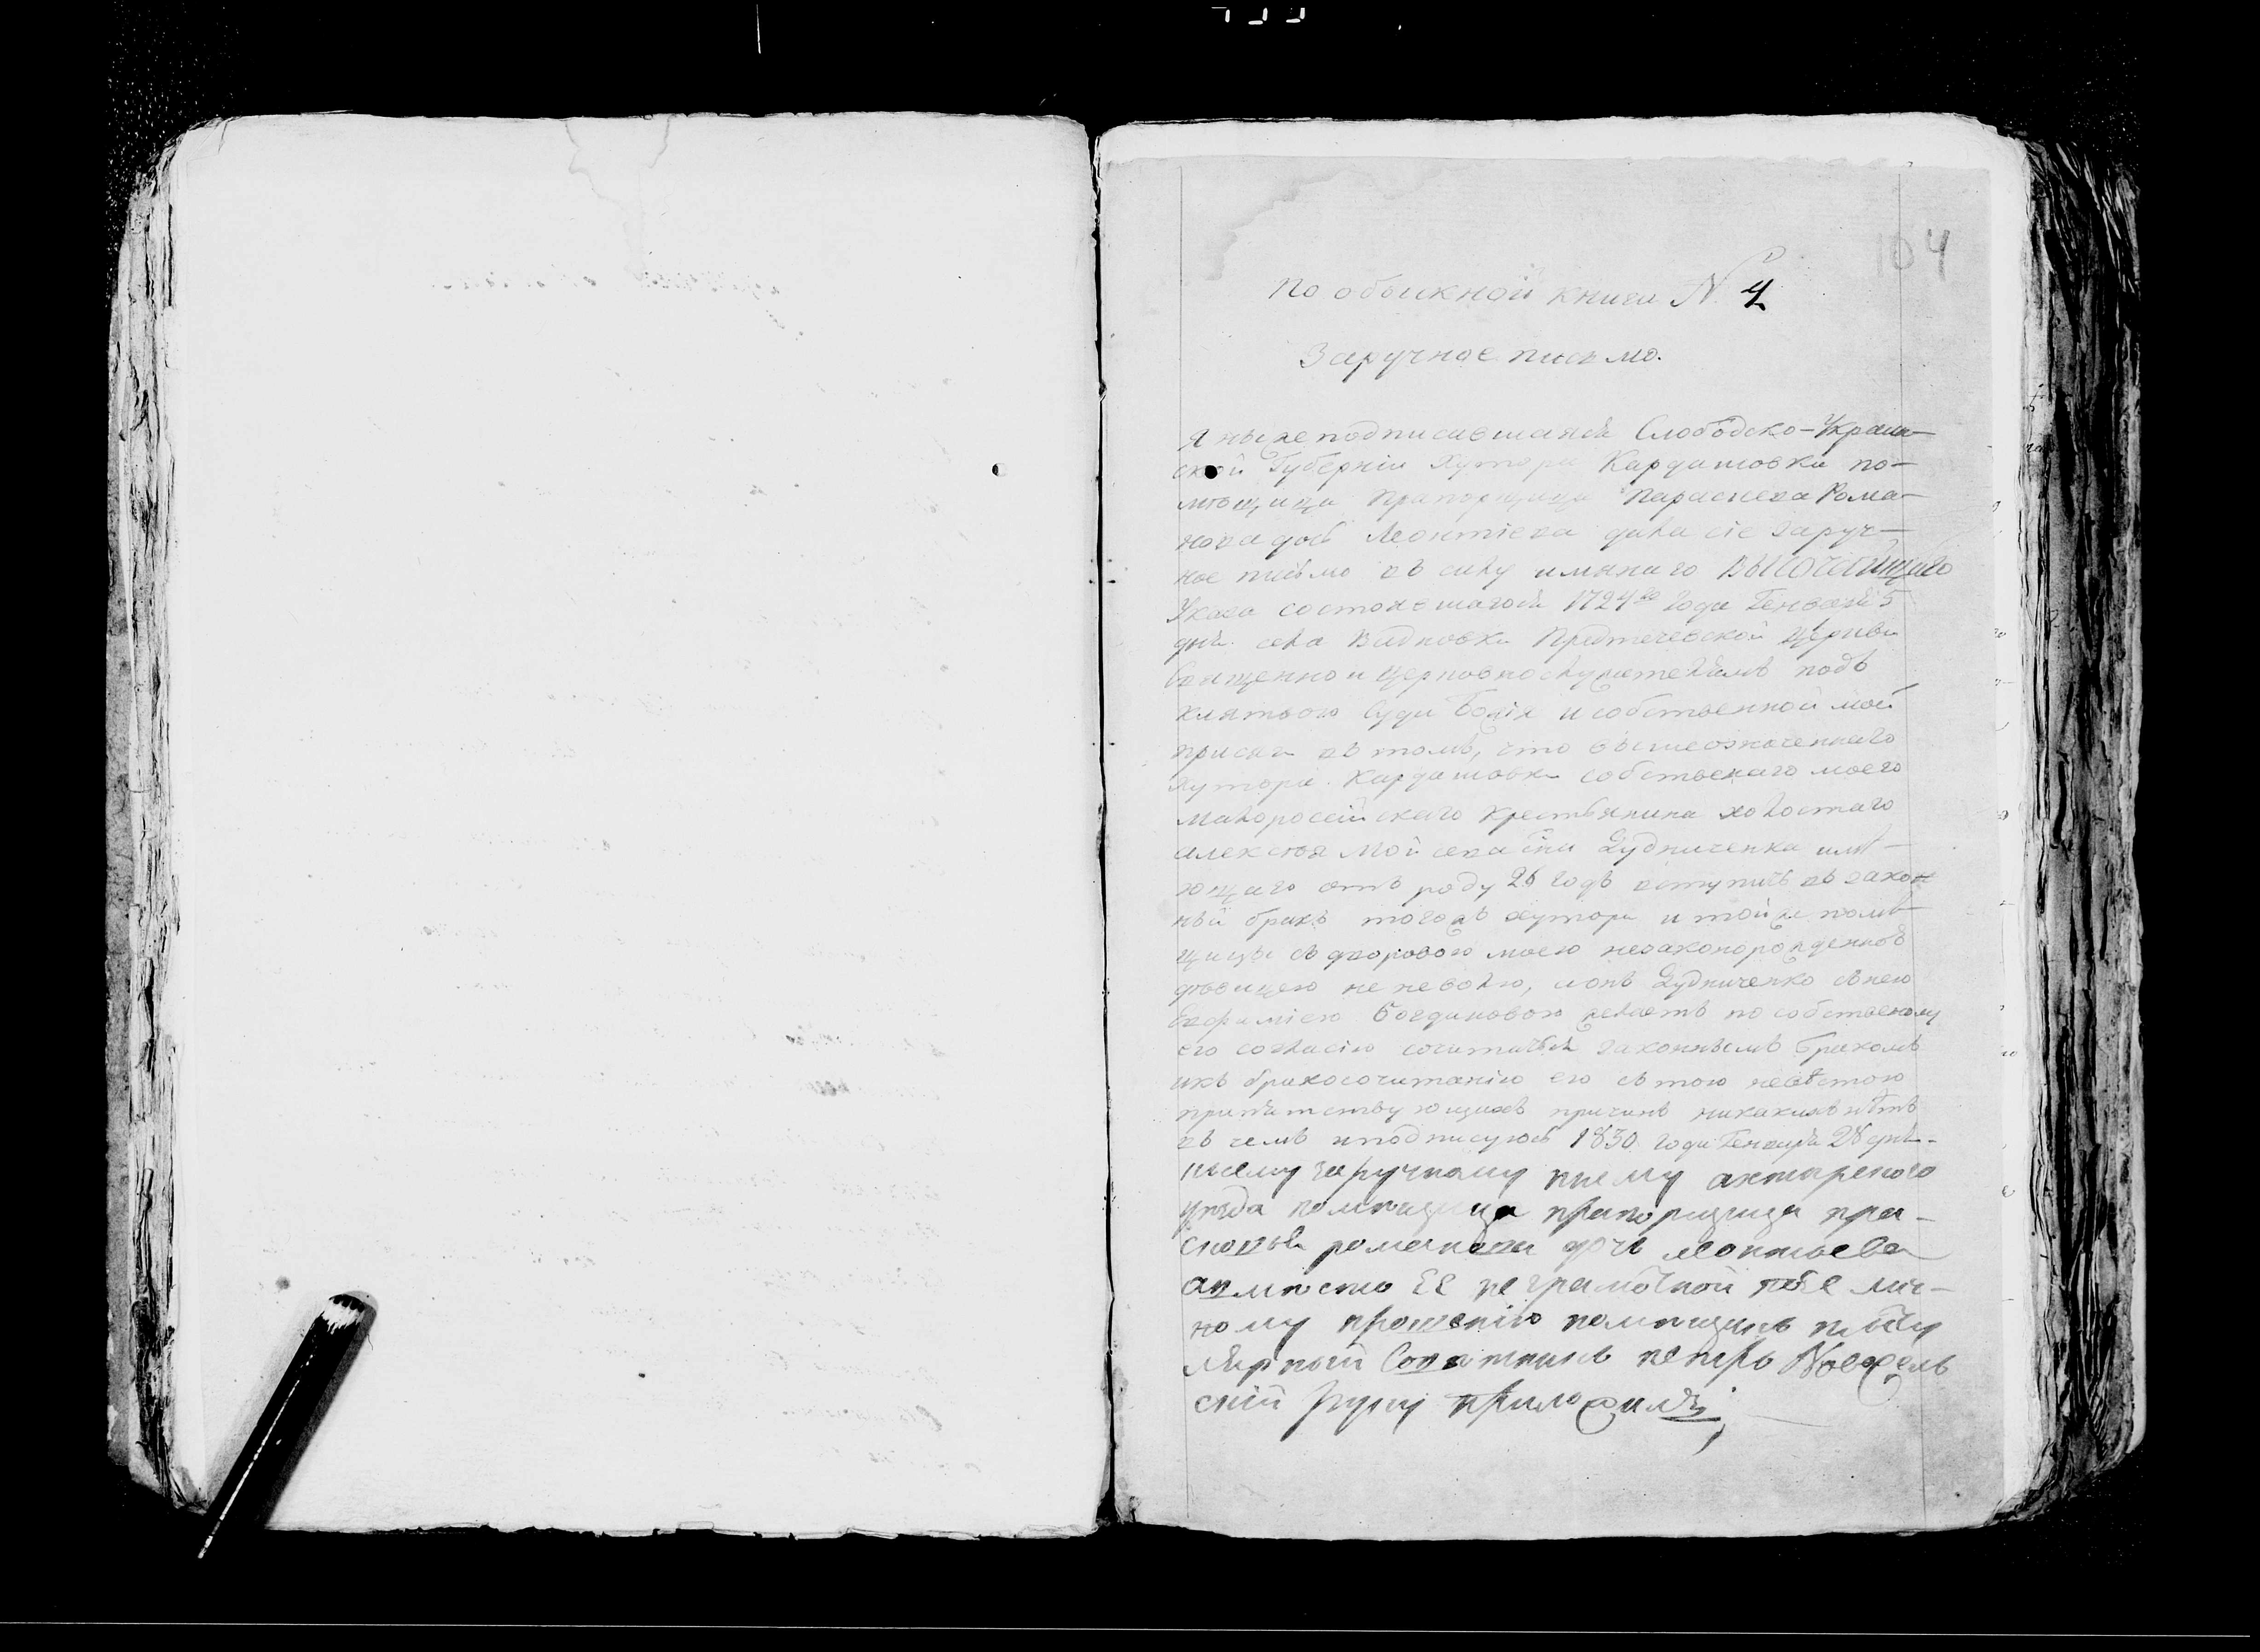 104
По обыкной книги N 4
Заручное письмо.
Я ниже подписавшаяся Слободско-Украин-
ской Губерніи Хутора Кардашовки по-
мѣщица Прапорщица Параскева Рома-
нова дочь Леонтіева дала сіе заруч-
ное письмо въ силу имянаго ВЫСОЧАЙшаго
Указа состоявшагося 1724го Года Генваря 5
дня. села Предтечевской Церкви
Священно и Церковнослужителямъ подъ
клятвою Суда Божія и собственной моей
присяги въ томъ, что вышеозначеннаго
Хутора Кардашовки собственаго моего
малоросейскаго крестьянина холостаго
алексѣя Мойсеева сна Дудниченка имѣ-
ющаго отъ роду 26 годъ вступить въ закон
ный бракъ тогожъ хутора и тойже помѣ-
щицы съ дворовою моею незаконорожденною
дѣвицею не неволю, ионъ Дудниченко снею
Евфиміею Богдановою желаетъ по собственому
его согласію сочитаться законнымъ бракомъ
икъ бракосочитанію его стою невѣстою
препятствующихъ причинъ никакихъ нѣтъ
въ чемъ иподписуюсь 1830 года Генваря 28 дня.
Ксему заручному пису ахтырского
уѣзда помѣщица прапорщица пра-
сковья романова дочь леонтьева
авмѣсто ЕЕ неграмотной поее лич-
ному прошенію помѣщикъ титу
лярный Советникъ петръ
скій руку приложилъ